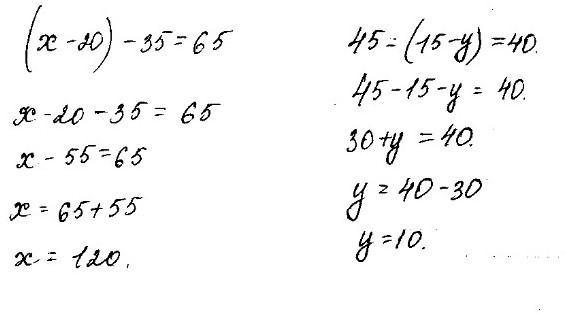 (x - 20) - 35 = 65
x - 20 - 35 = 65
x - 55 = 65
x = 65 + 55
x = 120.
45 - (15 - y) = 40.
45 - 15 - y = 40.
30 + y = 40.
y = 40 - 30
y = 10.